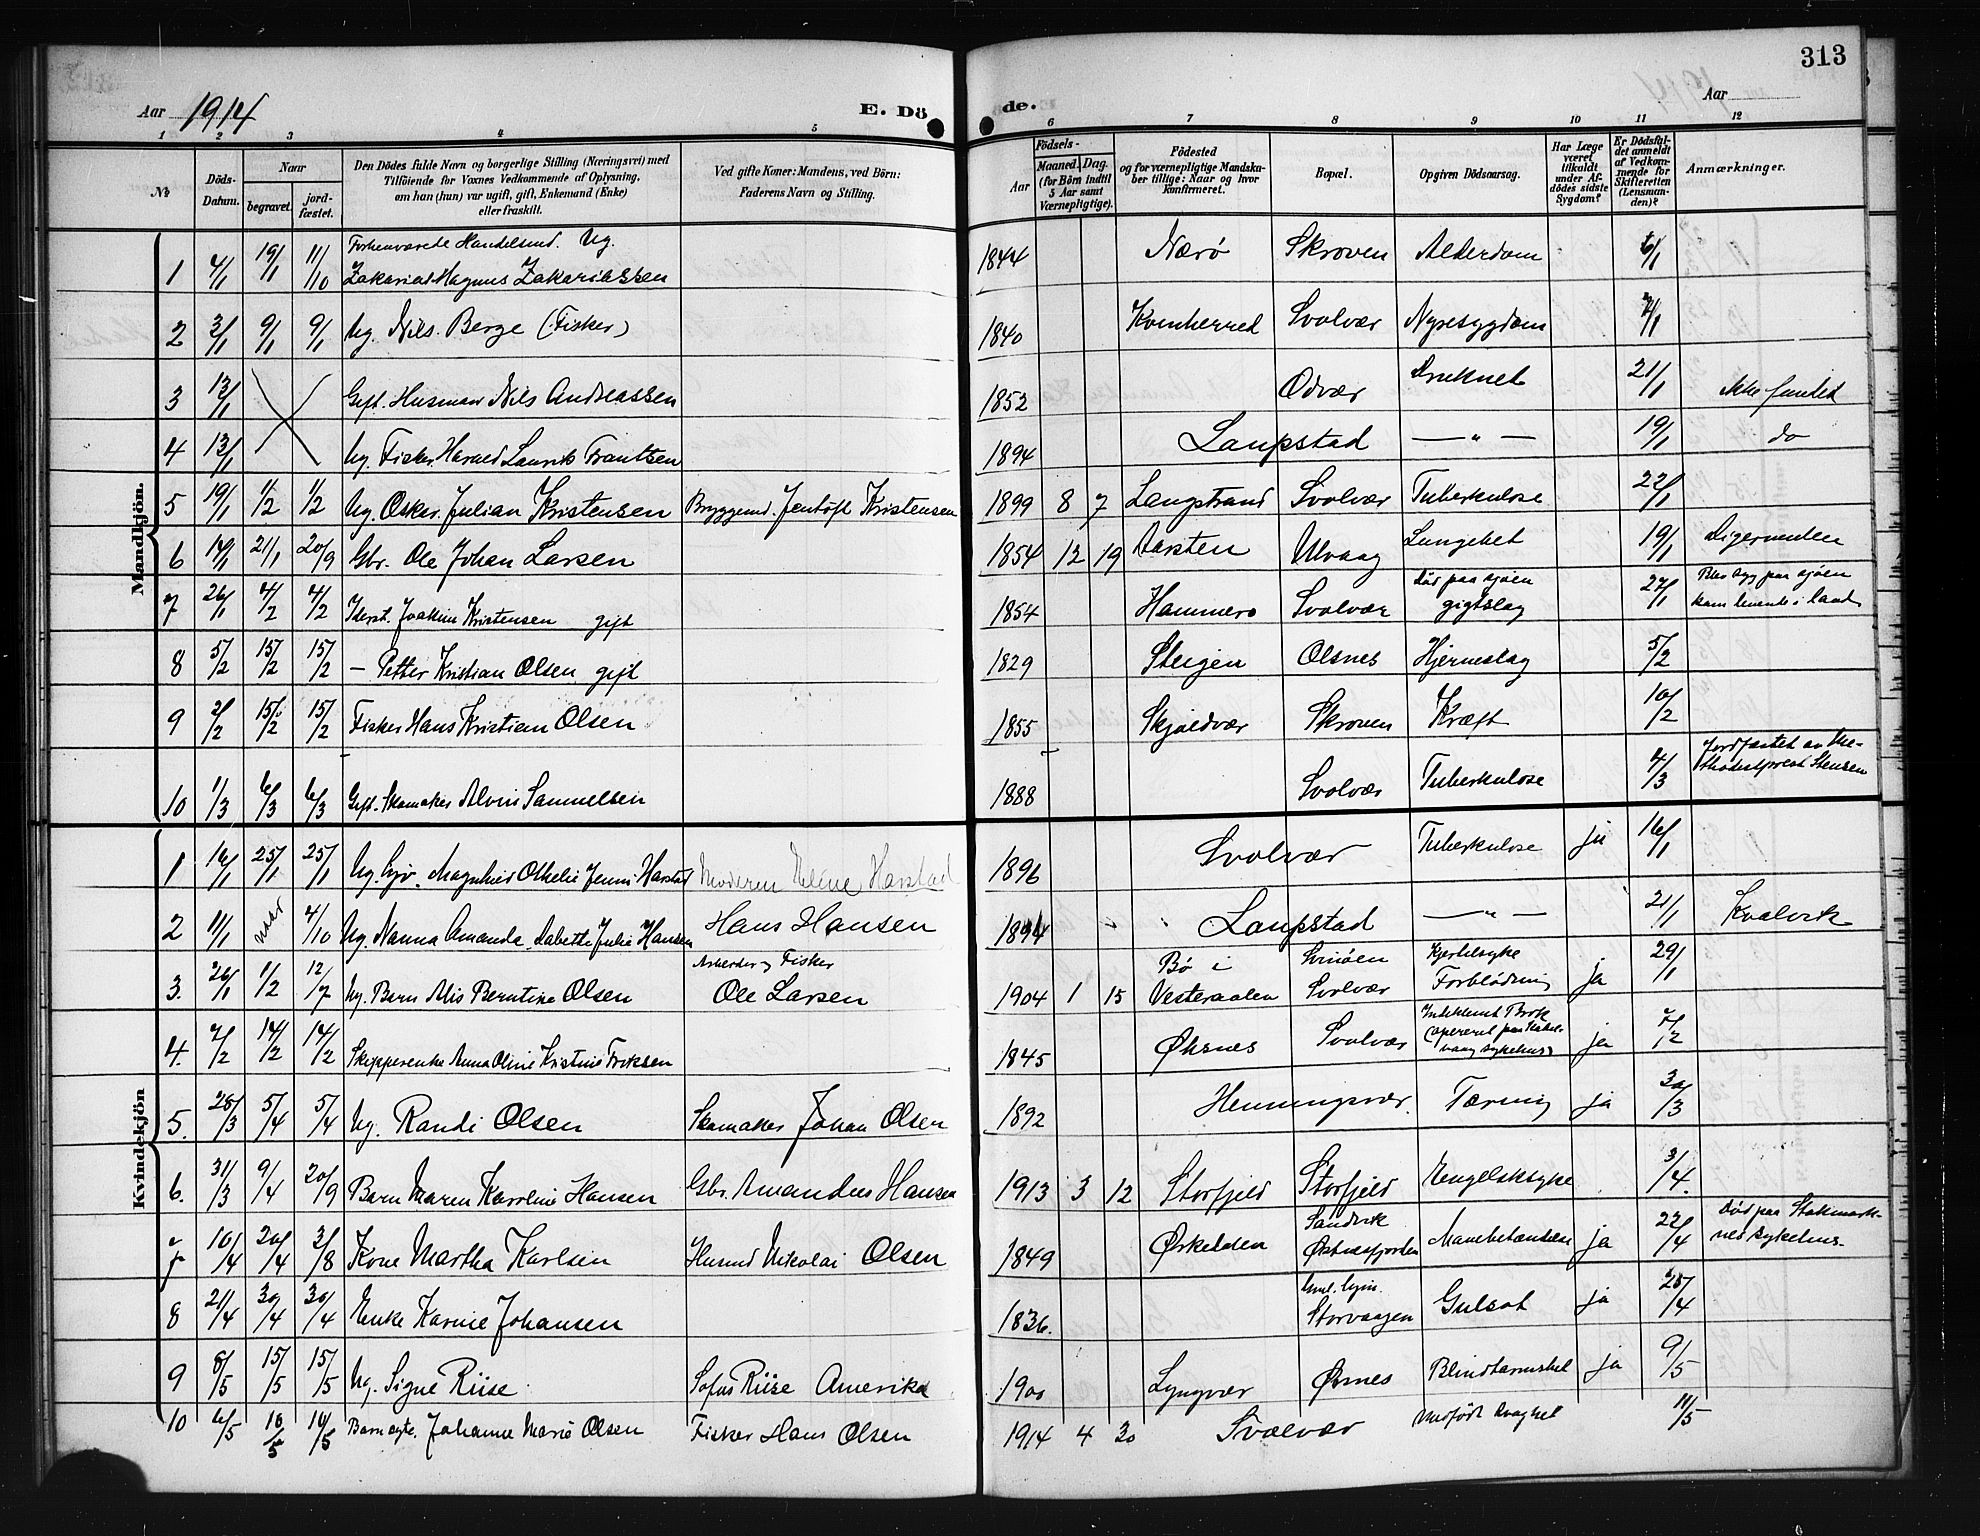 313
Aar 1914
E. Döde.
Aar
1 2 3 4 5 6 7 8 9 10 11 12
№
Döds-Datum.
Naar
begravet.
jordfæstet.
Den Dödes fulde Navn og borgerlige Stilling (Næringsvei) med Tilföiende for Voxnes Vedkommende af Oplysning, om han (hun) var ugift, gift, Enkemand (Enke) eller fraskilt.
Ved gifte Koner: Mandens, ved Börn: Faderens Navn og Stilling.
Födsels-
Aar
Maaned. Dag.
(for Börn indtil 5 Aar samt Værnepligtige).
Födested og for værnepligtige Mandskaber tillige: Naar og hvor Konfirmeret.
Bopæl.
Opgiven Dödsaarsag.
Har Læge været tilkaldt under Afdödes sidste Sygdom?
Er Dödsfaldet anmeldt af Vedkommende for Skifteretten (Lensmanden)?
Anmærkninger.
Mandkjön.
1 4/1 19/1 11/10 Forhenværende Handelsmd. Ug. Zakarias Magnus Zakariassen 1844 Nærö Skroven Alderdom 6/1
2 3/1 9/1 9/1 Ug. Nils Berge (Fisker) 1840 Kvinherred Svolvær Nyresygdom 7/1
3 13/1 Gift. Husmand Nils Andreassen 1852 Odvær Druknet 21/1 Ikke fundet
4 13/1 Ug. Fisker Harald Lauriks Frantsen 1894 Laupstad — " — 19/1 do
5 19/1 1/2 1/2 Ug. Oskar Julian Kristensen Bryggemd. Jentoft Kristensen 1899 8 7 Langstrand Svolvær Tuberkulose 22/1
6 14/1 21/1 20/9 Gbr. Ole Johan Larsen 1854 12 19 Aarsten Ulvaag Lungebet 19/1 Digermulen
7 26/1 4/2 4/2 Iderst. Joakim Kristensen gift 1854 Hammerö Svolvær Död paa sjöen gigtslag 27/1 Blev syg paa sjöen kom levende i land
8 5/2 15/2 15/2 — Petter Kristian Olsen gift 1829 Steigen Olsnes Hjerneslag 5/2
9 2/2 15/2 15/2 Fisker Hans Kristian Olsen 1855 Skjoldvær Skroven Kræft 10/2
10 1/3 6/3 6/3 Gift. Skomaker Alvin Samuelsen 1888 Svolvær Tuberkulose 4/3 Jordfæstet av Methodistprest Stensen
Kvindekjön
1 16/1 25/1 25/1 Ug. Magnhild Othelie Jenni Harstad Moderen Heline Harstad 1896 Svolvær Tuberkulose ja 16/1
2 11/1 4/10 Ug. Nanna Amanda Dabette Julie Hansen Hans Hansen 1894 Laupstad — " — 21/1 Kvalvik
3. 26/1 1/2 12/7 Ug. Barn Alis Berntine Olsen Arbeider og Fisker Ole Larsen 1904 1 15 Bö i Vesteraalen Svinöen Svolvær Kjertelsyke Forblödning ja 29/1
4. 7/2 14/2 14/2 Skipperenke Anna Oline Kristine Eriksen 1845 Øksnes Svolvær Indeklemt Brok (opereret paa Kabelvaag sykehus) ja 7/2
5. 28/3 5/4 5/4 Ug. Randi Olsen Skomaker Johan Olsen 1892 Henningsvær. Tæring ja 30/3
6. 31/3 9/4 20/9 Barn Maren Karoline Hansen Gbr. Amandus Hansen 1913 3 12 Storfjeld Storfjeld Engelsksyke 3/4.
7 10/4 20/4 2/8 Kone Martha Karlsen Husmd Nikolai Olsen 1849 Ørkedalen Sandvik Østnesfjorden Mavebetændelse ja 22/4 död paa Stokmarknes sykehus.
8 21/4 30/4 30/4 Enke Karine Johansen 1836. Storvaagen Gulsot ja 28/4
9 8/5 15/5 15/5 Ug. Signe Riise Sofus Riise Amerika 1900 Lyngvær Ørsnes Blindtarmsbet ja 9/5
10 6/5 10/5 10/5 Barn ægte. Johanne Marie Olsen Fisker Hans Olsen 1914 4 30 Svolvær Medfödt svaghet 11/5